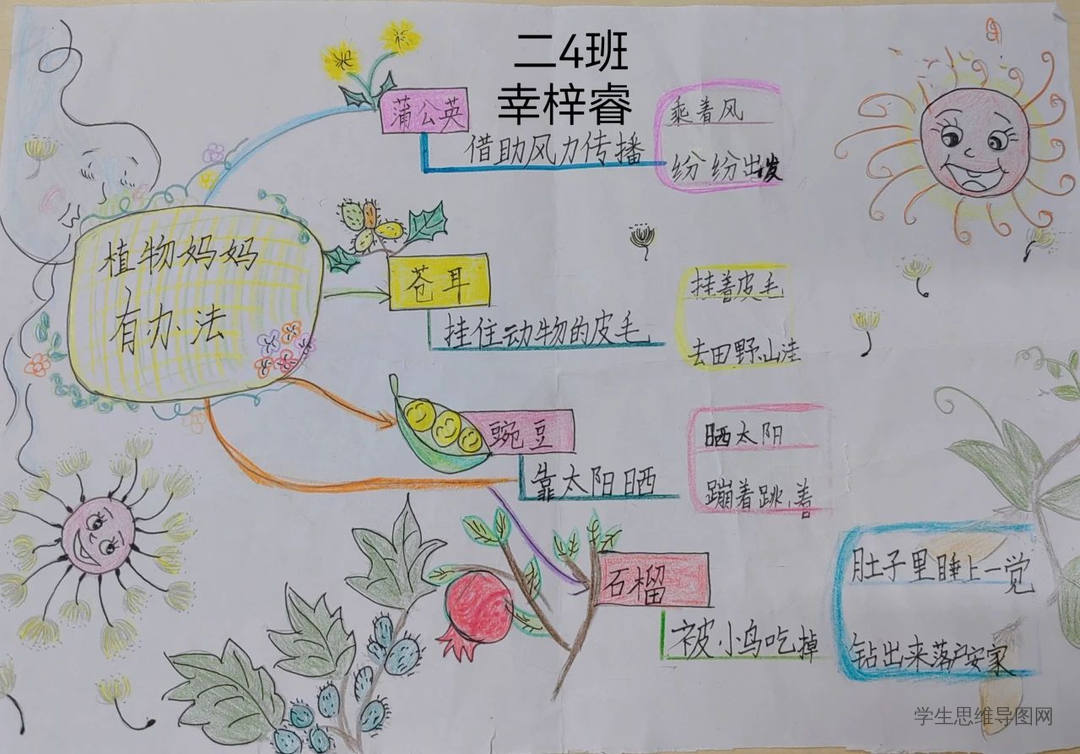 二4班
幸梓睿
植物妈妈
有办法
蒲公英
借助风力传播
乘着风
纷纷出发
苍耳
挂住动物的皮毛
挂着皮毛
去田野山洼
豌豆
靠太阳晒
晒太阳
蹦着跳着
石榴
被小鸟吃掉
肚子里睡上一觉
钻出来落户安家
学生思维导图网